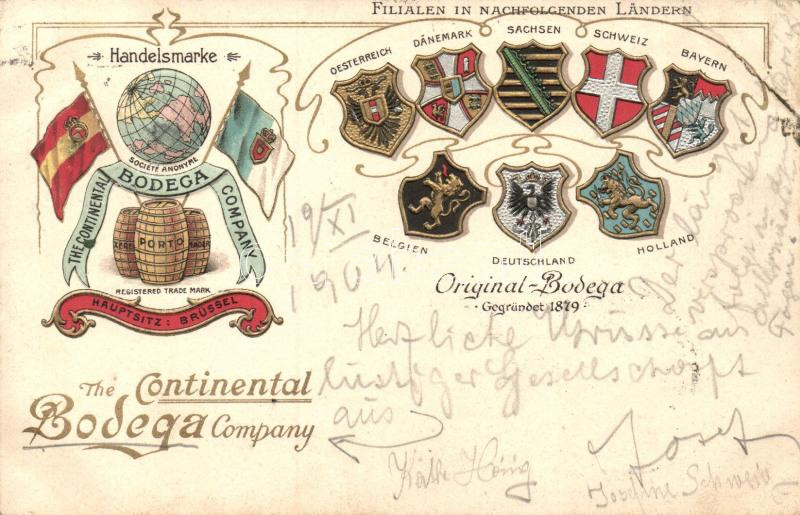 FILIALEN IN NACHFOLGENDEN LÄNDERN
Handelsmarke
OESTERREICH
DÄNEMARK
SACHSEN
SCHWEIZ
BAYERN
SOCIÉTÉ ANONYME
THE CONTINENTAL
BODEGA
COMPANY
XERES
PORTO
MADER
REGISTERED TRADE MARK
HAUPTSITZ: BRÜSSEL
BELGIEN
DEUTSCHLAND
HOLLAND
Original-Bodega
Gegründet 1879
The Continental
Bodega Company
19/XI
1904.
Herzliche Grüsse aus
lustiger Gesellschaft
aus
Käthe Hönig
Josef
Josefine